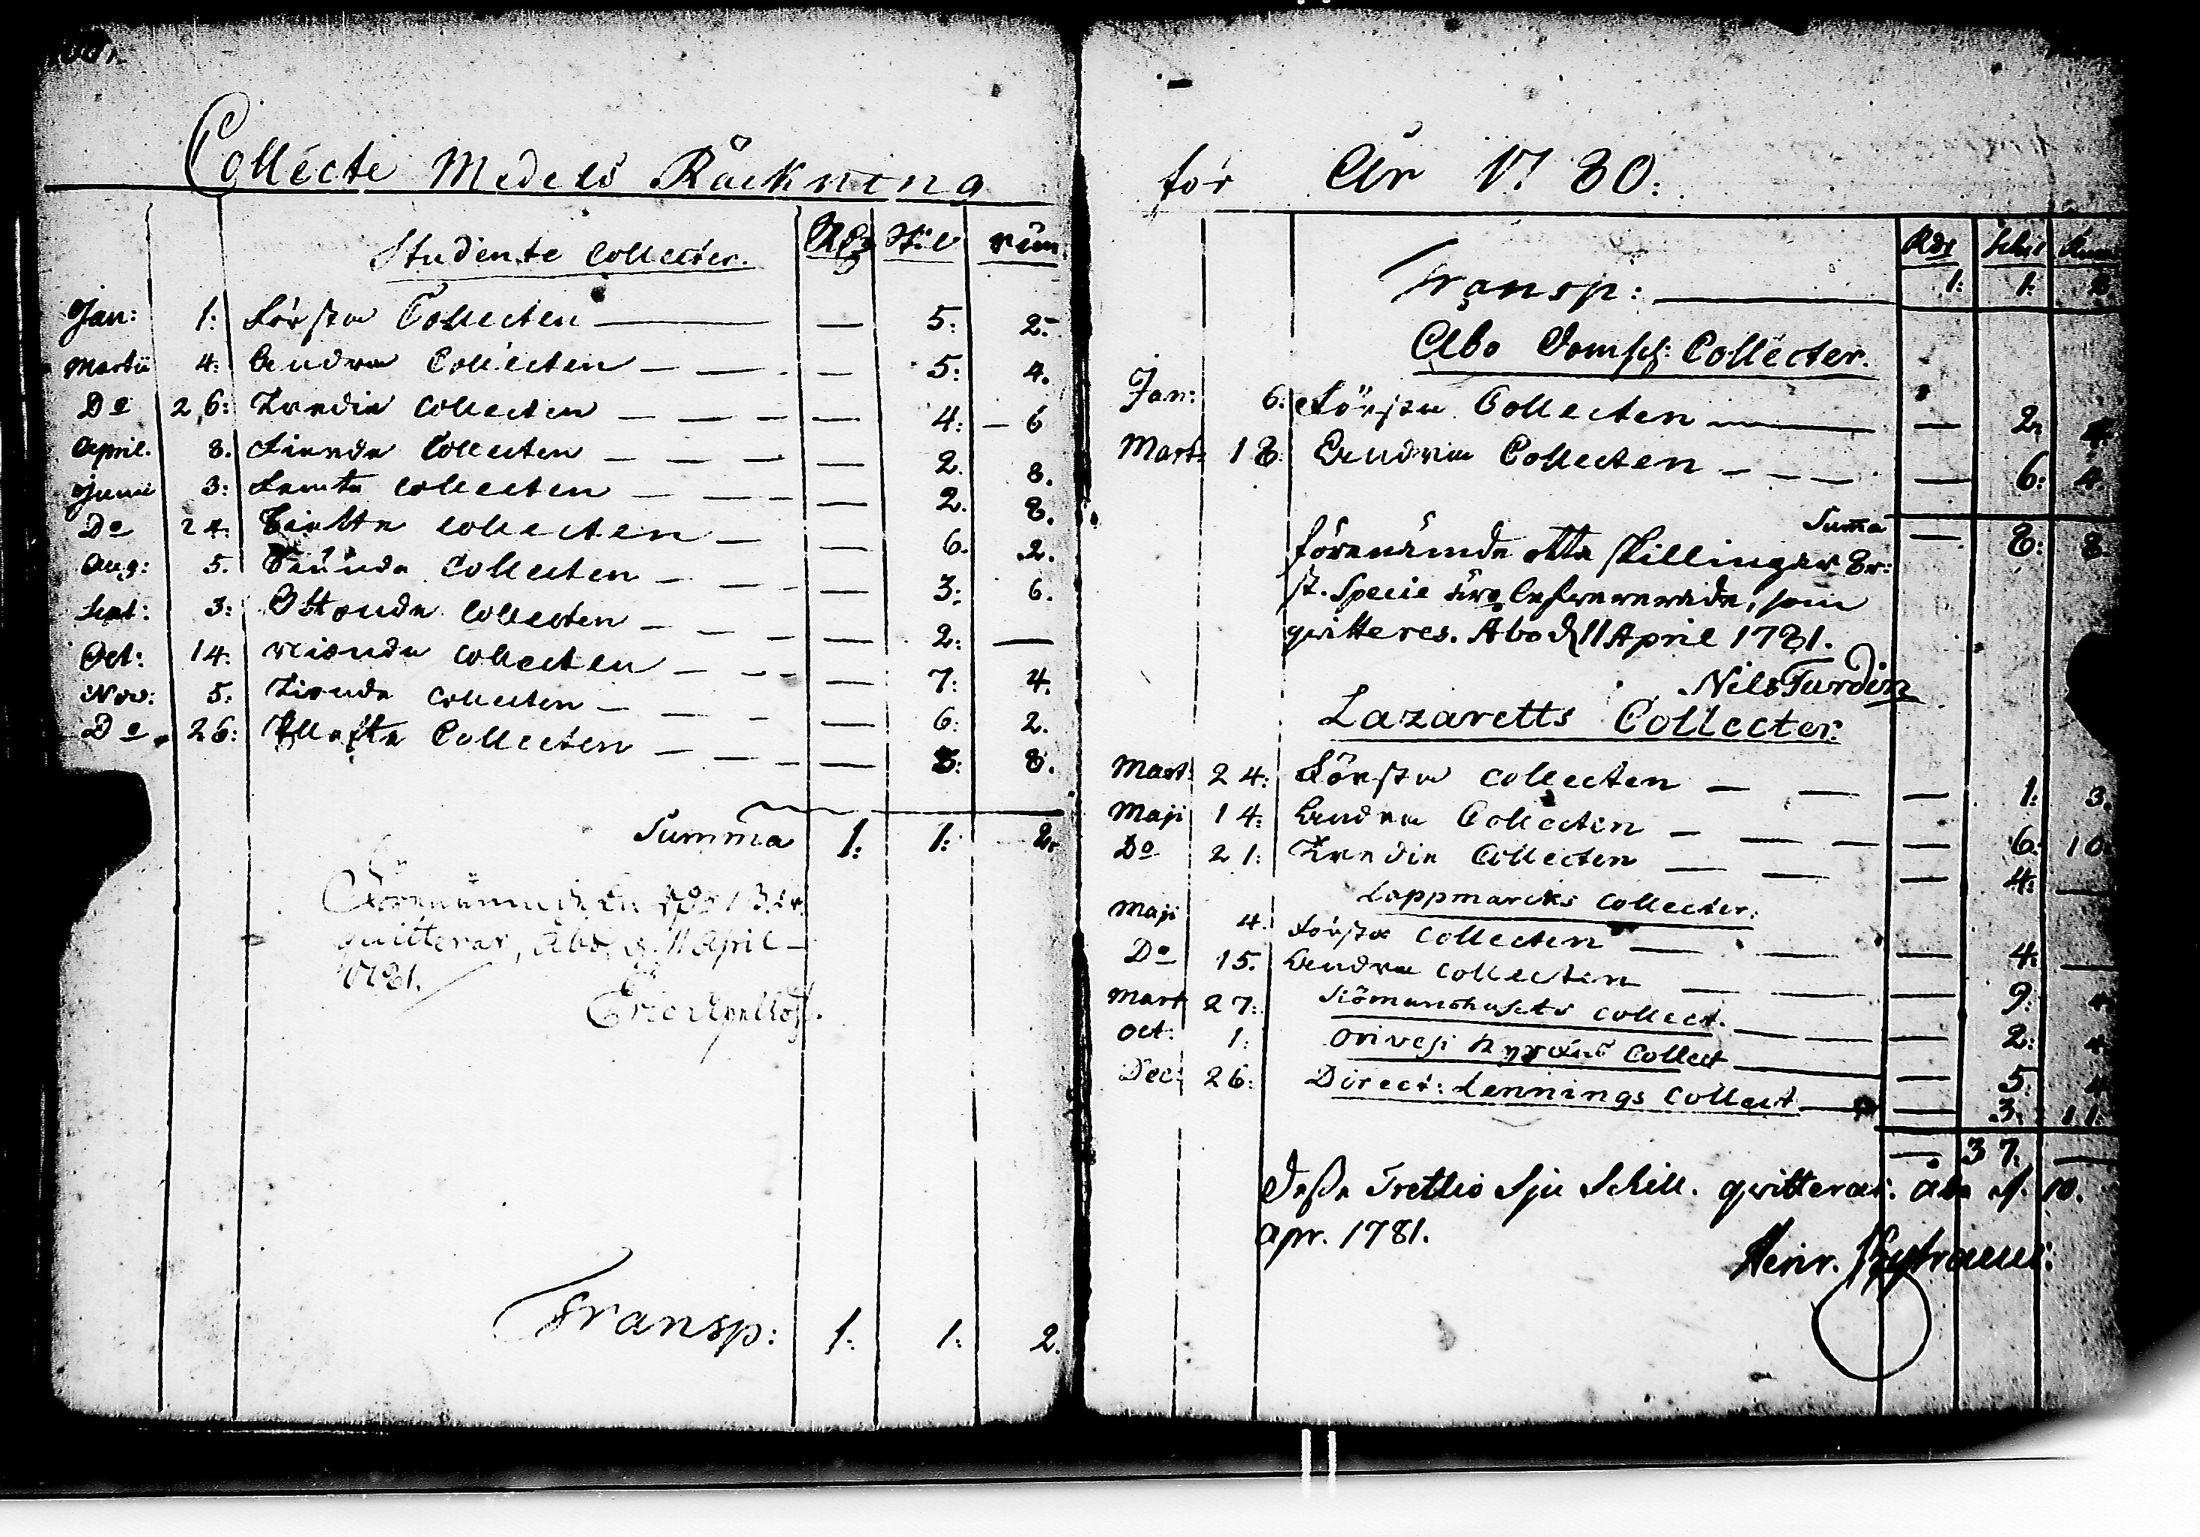 Collecte Medels Räckning
Studente Collecter. Rdr Skil rün
Jan: 1: Första Collecten — 5: 2.
Martii 4: Andra Collecten — 5: 4.
Do 26: Tredie Collecten — 4: — 6
April. 8. Fierde Collecten — 2. 8.
Junii 3: Femte Collecten — 2. 8.
Do 24. Siette Collecten — 6. 2.
Aug: 5. Siünde Collecten — 3: 6.
Sept: 3: Ottonde Collecten — 2: —
Oct: 14. Nionde Collecten — 7: 4.
Nov: 5. Tionde Collecten — 6: 2.
Do 26: Ellofte Collecten — 8.
Summa 1: 1: 2.
quitterar, Åbo, d. 11 April
1781.
Eric
Transp: 1: 1: 2.
för År 1780:
Rdr Skil Rün
Transp: — 1: 1: 2
Åbo Domk: Collecter.
Jan: 6: Första Collecten — 2: 4.
Mart: 18: Andra Collecten — 6: 4.
Summa — 8: 8.
förenämde otta skillingar 8 r:
st. Specie äro lefvererade, som
qvitteres. Åbo d 11 April 1781.
Nils Turdin
Lazaretts Collecter:
Mart: 24: Första Collecten — 1: 3.
Maji 14: Andra Collecten — 6: 10.
Do 21: Tredie Collecten — 4: —
Lappmarcks Collecter.
Maji 4. Första Collecten — 4: —
Do 15. Andra Collecten — 9: 4.
Mart 27: Siömanshusets Collect. — 2: 4.
Oct: 1: Orivesi Kyrckas Collect — 5: 4
Dec: 26: Direct: Lennings Collect — 3: 11.
— 37: —
Desse Trettio Sju Schill. qvitterar. Åbo d. 10.
Apr. 1781.
Henr.